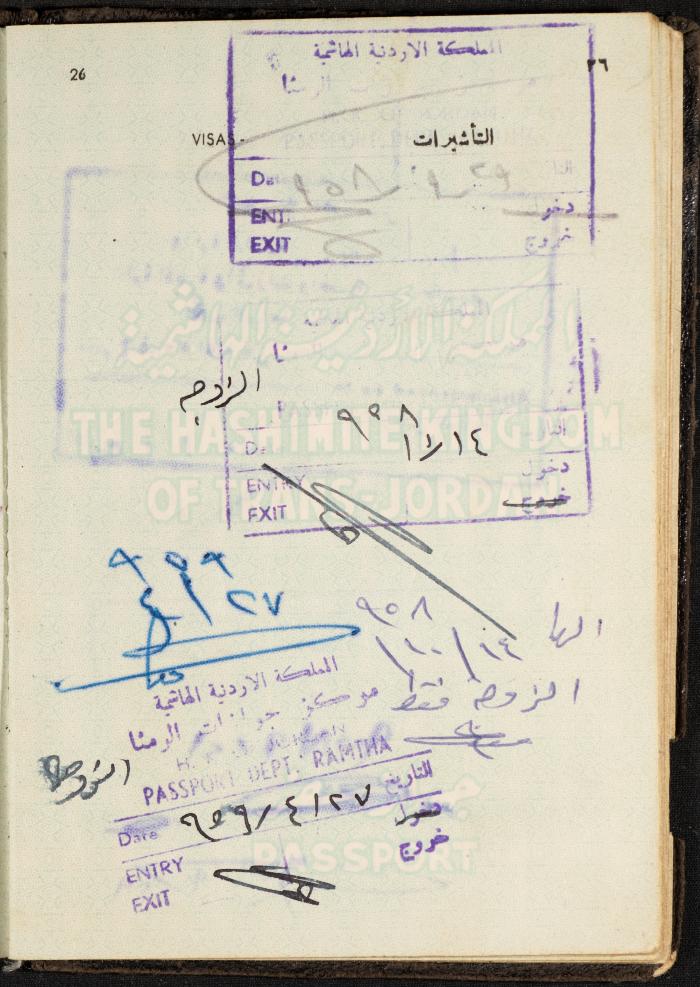 26
٢٦
المملكة الاردنية الهاشمية
الرمثا
VISAS-
التأشيرات
٩٥٨ / ٩ / ٢٩
دخول
ENT
EXIT
خروج
المملكة الأردنية الهاشمية
الزوجه
THE HASHIMITE KINGDOM
٩٥٨
١١/١٤
دخول
ENTRY
خروج
EXIT
OF TRANS-JORDAN
٩٥٩
٤/٢٧
٩٥٨
١٠/١٤
الزوجه فقط
المملكة الاردنية الهاشمية
مركز جوازات الرمثا
الزوجه
PASSPORT DEPT. RAMTHA
التاريخ
Date
٩٥٩/٤/٢٧
دخول
خروج
ENTRY
EXIT
PASSPORT